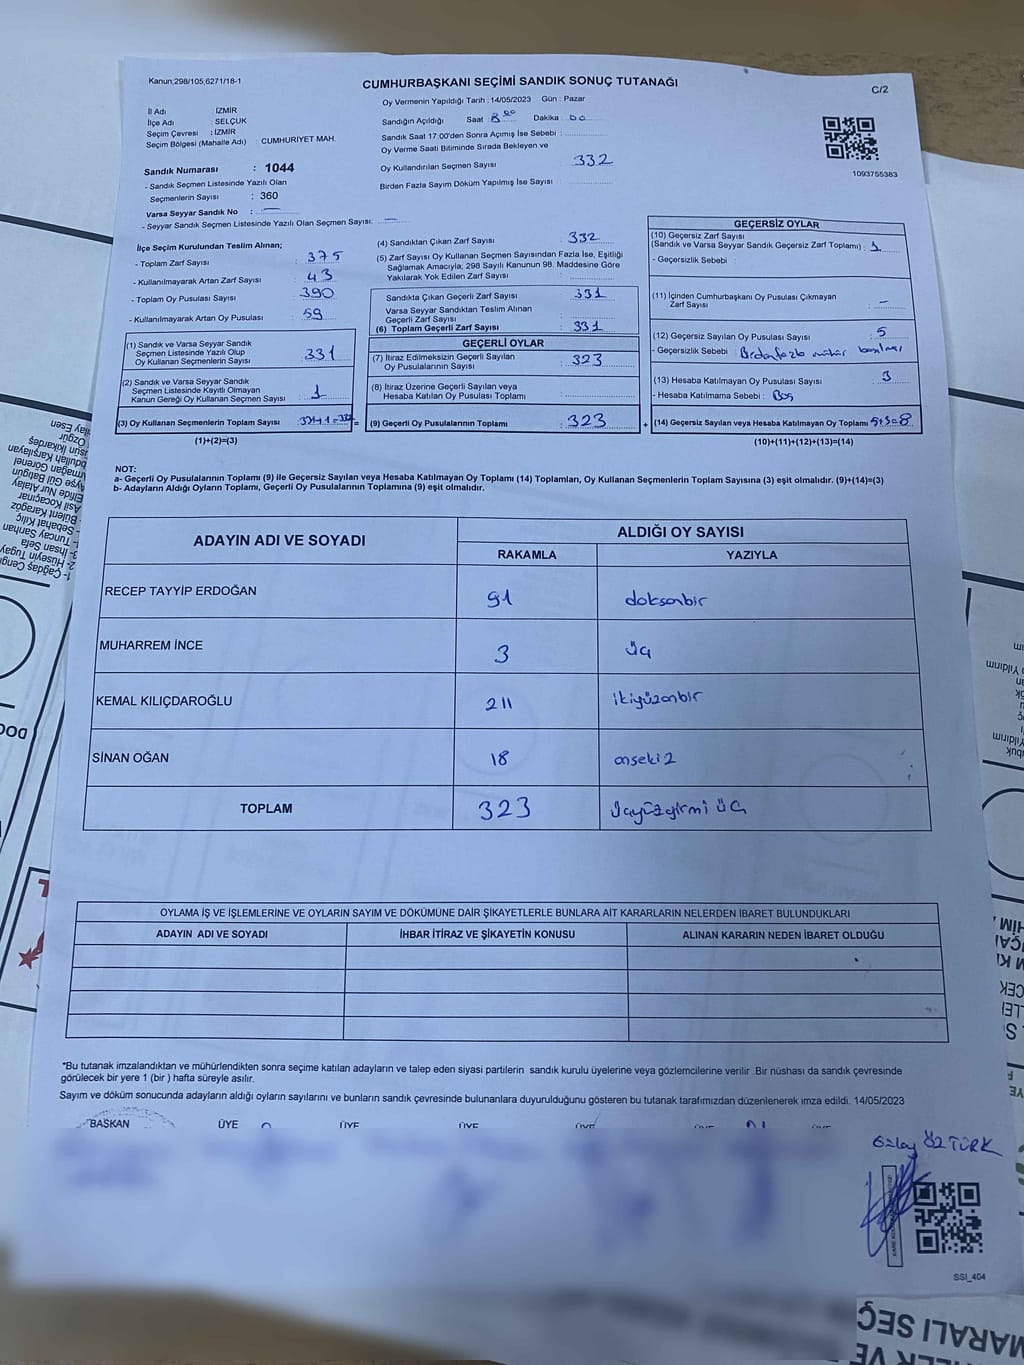 Kanun:298/105,6271/18-1
CUMHURBAŞKANI SEÇİMİ SANDIK SONUÇ TUTANAĞI
C/2
Oy Vermenin Yapıldığı Tarih :14/05/2023 Gün : Pazar
İl Adı : İZMİR
İlçe Adı : SELÇUK
Seçim Çevresi : İZMİR
Seçim Bölgesi (Mahalle Adı) : CUMHURİYET MAH.
Sandığın Açıldığı Saat 8 00 Dakika 00
Sandık Saat 17.00'den Sonra Açımış İse Sebebi :
Oy Verme Saati Bitiminde Sırada Bekleyen ve
Oy Kullandırılan Seçmen Sayısı 332
Birden Fazla Sayım Döküm Yapılmış İse Sayısı
1093755383
Sandık Numarası : 1044
- Sandık Seçmen Listesinde Yazılı Olan
Seçmenlerin Sayısı : 360
Varsa Seyyar Sandık No : —
- Seyyar Sandık Seçmen Listesinde Yazılı Olan Seçmen Sayısı: —
İlçe Seçim Kurulundan Teslim Alınan;
- Toplam Zarf Sayısı : 375
- Kullanılmayarak Artan Zarf Sayısı : 43
- Toplam Oy Pusulası Sayısı : 390
- Kullanılmayarak Artan Oy Pusulası : 59
(1) Sandık ve Varsa Seyyar Sandık
Seçmen Listesinde Yazılı Olup
Oy Kullanan Seçmenlerin Sayısı : 331
(2) Sandık ve Varsa Seyyar Sandık
Seçmen Listesinde Kayıtlı Olmayan
Kanun Gereği Oy Kullanan Seçmen Sayısı : 1
(3) Oy Kullanan Seçmenlerin Toplam Sayısı : 331+1=332 =
(1)+(2)=(3)
(4) Sandıktan Çıkan Zarf Sayısı : 332
(5) Zarf Sayısı Oy Kullanan Seçmen Sayısından Fazla İse, Eşitliği
Sağlamak Amacıyla, 298 Sayılı Kanunun 98. Maddesine Göre
Yakılarak Yok Edilen Zarf Sayısı :
Sandıkta Çıkan Geçerli Zarf Sayısı : 331
Varsa Seyyar Sandıktan Teslim Alınan
Geçerli Zarf Sayısı :
(6) Toplam Geçerli Zarf Sayısı : 331
GEÇERLİ OYLAR
(7) İtiraz Edilmeksizin Geçerli Sayılan
Oy Pusulalarının Sayısı : 323
(8) İtiraz Üzerine Geçerli Sayılan veya
Hesaba Katılan Oy Pusulası Toplamı :
(9) Geçerli Oy Pusulalarının Toplamı : 323 +
GEÇERSİZ OYLAR
(10) Geçersiz Zarf Sayısı
(Sandık ve Varsa Seyyar Sandık Geçersiz Zarf Toplamı) : 1
- Geçersizlik Sebebi :
(11) İçinden Cumhurbaşkanı Oy Pusulası Çıkmayan
Zarf Sayısı : —
(12) Geçersiz Sayılan Oy Pusulası Sayısı : 5
- Geçersizlik Sebebi : Birden fazla mühür basılması
(13) Hesaba Katılmayan Oy Pusulası Sayısı : 3
- Hesaba Katılmama Sebebi : Boş
(14) Geçersiz Sayılan veya Hesaba Katılmayan Oy Toplamı 5+3=8
(10)+(11)+(12)+(13)=(14)
NOT:
a- Geçerli Oy Pusulalarının Toplamı (9) ile Geçersiz Sayılan veya Hesaba Katılmayan Oy Toplamı (14) Toplamları, Oy Kullanan Seçmenlerin Toplam Sayısına (3) eşit olmalıdır. (9)+(14)=(3)
b- Adayların Aldığı Oyların Toplamı, Geçerli Oy Pusulalarının Toplamına (9) eşit olmalıdır.
ADAYIN ADI VE SOYADI
ALDIĞI OY SAYISI
RAKAMLA YAZIYLA
RECEP TAYYİP ERDOĞAN 91 doksanbir
MUHARREM İNCE 3 üç
KEMAL KILIÇDAROĞLU 211 ikiyüzonbir
SİNAN OĞAN 18 onsekiz
TOPLAM 323 üçyüzyirmi üç
OYLAMA İŞ VE İŞLEMLERİNE VE OYLARIN SAYIM VE DÖKÜMÜNE DAİR ŞİKAYETLERLE BUNLARA AİT KARARLARIN NELERDEN İBARET BULUNDUKLARI
ADAYIN ADI VE SOYADI İHBAR İTİRAZ VE ŞİKAYETİN KONUSU ALINAN KARARIN NEDEN İBARET OLDUĞU
*Bu tutanak imzalandıktan ve mühürlendikten sonra seçime katılan adayların ve talep eden siyasi partilerin sandık kurulu üyelerine veya gözlemcilerine verilir .Bir nüshası da sandık çevresinde
görülecek bir yere 1 (bir ) hafta süreyle asılır.
Sayım ve döküm sonucunda adayların aldığı oyların sayılarını ve bunların sandık çevresinde bulunanlara duyurulduğunu gösteren bu tutanak tarafımızdan düzenlenerek imza edildi. 14/05/2023
BAŞKAN ÜYE ÜYE ÜYE ÜYE ÜYE ÜYE
Gülay ÖZTÜRK
SSI_404